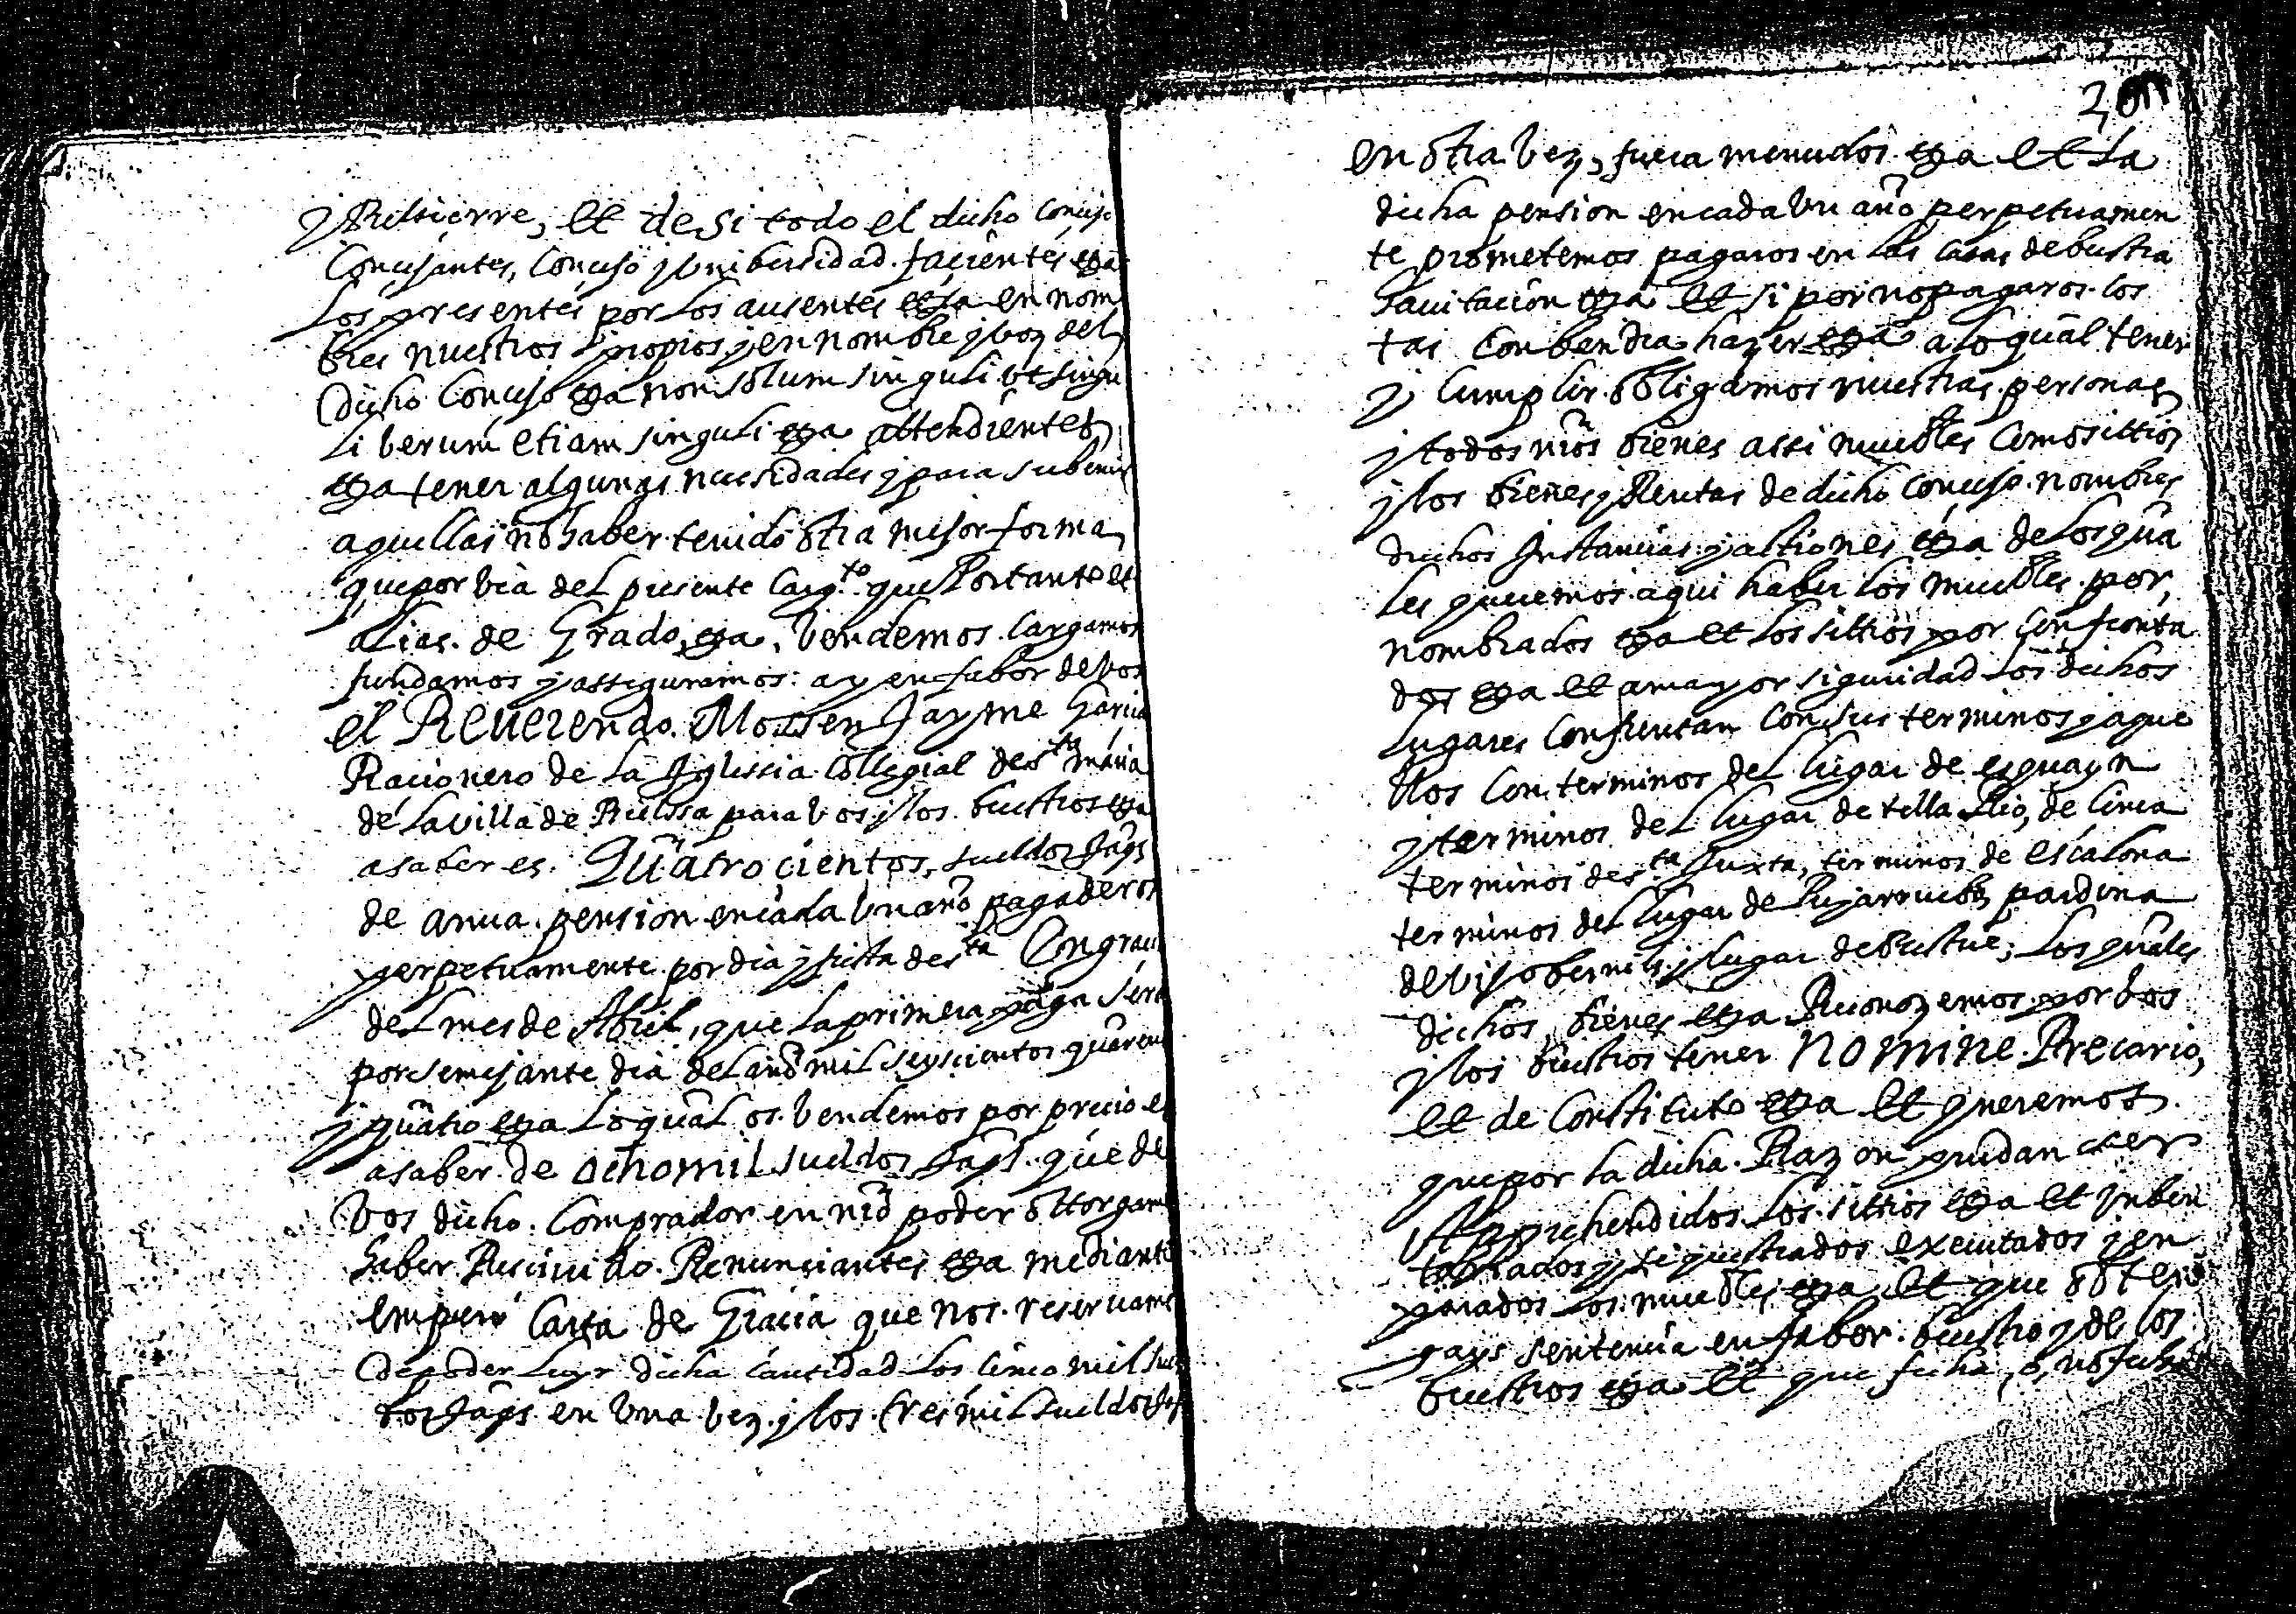 y Bielsierre, et de si todo el dicho Concejo
Concejantes, Concejo y Unibersidad facientes etza
Los presentes por los ausentes etza en nom
bres nuestros propios y en nombre y voz del
Dicho Concejo etza non solum singuli ut singu
li berum etiam singuli etza attendientes
etza tener algunas necesidades y para subenir
aquellas no haber tenido otra mejor forma
que por via del presente Carg.to que Por tanto et
alias de Grado etza. Vendemos Cargamos
fundamos y asseguramos: ay en fabor de vos
el Reuerendo Mossen Jayme Garcia
Racionero de la Iglessia Collegial de s.ta maria
de la villa de Bielssa para vos y los buestros etza
asaber es. Quatrocientos sueldos Jaqs
de anua pension en cada Un año pagaderos
perpetuamente por dia y fiesta de s.ta Engraci
del mes de Abril, que la primera paga sera
por semejante dia del año mil seyscientos quaren
y quatro etza Lo qual os vendemos por precio es
asaber de ochomil sueldos Jaqs. que de
Vos dicho Comprador en nro poder ottorgam
haber Reciuido Renunciantes etza mediante
empero Carta de Gracia que nos reseruam
de poder luyr dicha cantidad los cinco mil suel
dos Jaqs en Una vez y los tres mil sueldos Jaqs
en otra vez, fuera menudos etza et la
dicha pension en cada Un año perpetuamen
te prometemos pagaros en las casas de bustra
hauitacion etza et si por no pagaros los
tas Conbendra hazer etza a lo qual tener
y Cumplir obligamos nuestras personas
y todos nros bienes assi muebles Como sittios
y los bienes y Rentas de dicho Concejo nombres
drechos Instancias y actiones etza de los qua
les queremos aqui haber los muebles por
nombrados etza et los sittios por Confronta
dos etza et a mayor siguridad los dichos
Lugares Confrentan Con sus terminos y aque
llos Con terminos del lugar de espuayn
y terminos del lugar de tella Rio de Cinca
terminos de s.ta Juxta, terminos de escalona
terminos del lugar de Puyarruebo pardina
de Visobernils y lugar de Buetue; Los quales
dichos bienes etza Reconozemos por bos
y los buestros tener Nomine Precario,
et de Constituto etza et queremos
que por la dicha Razon puedan ser
Apprehendidos los sittios etza et Inben
tariados y siquestrados executados y en
parados los muebles etza et que obten
gays sentencia en fabor buestro y de los
buestros etza et que fecha, o, no fecha